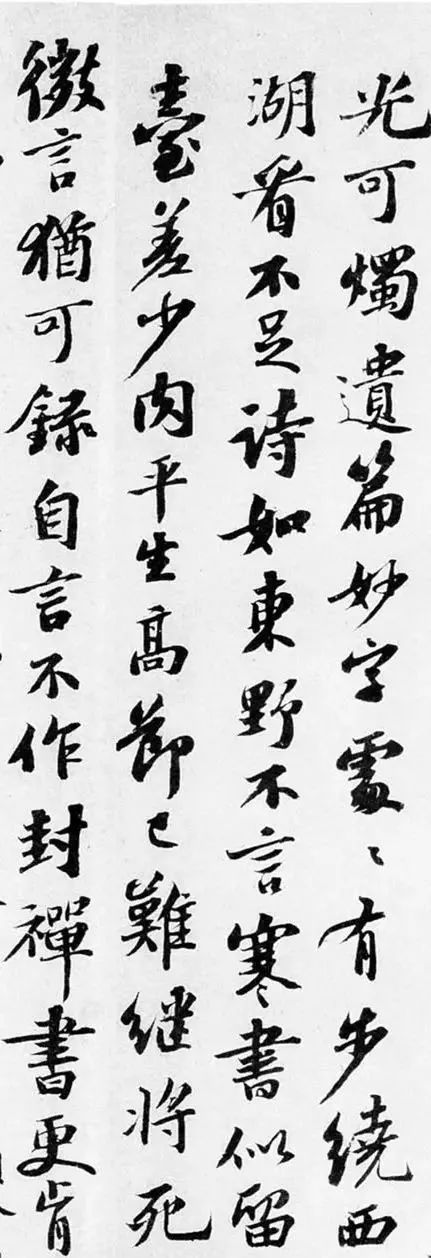 光可燭遺篇妙字處〻有步繞西
湖看不足詩如東野不言寒書似留
臺差少肉平生高節已難繼將死
微言猶可録自言不作封禪書更肯